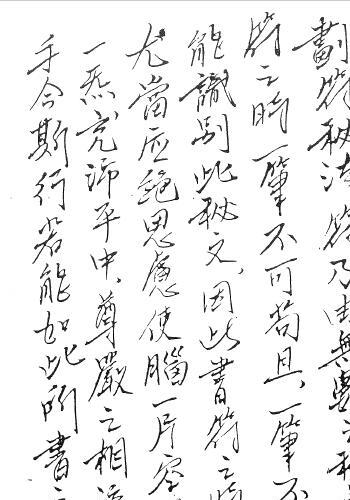 劃符秘法符乃由無數之
符之時一筆不可苟且、一筆不
能識別此秘文、因此書符之時
尤當应絕思慮使腦一片空
一炁充沛平中、尊嚴之相
手令斯行若能如此所書